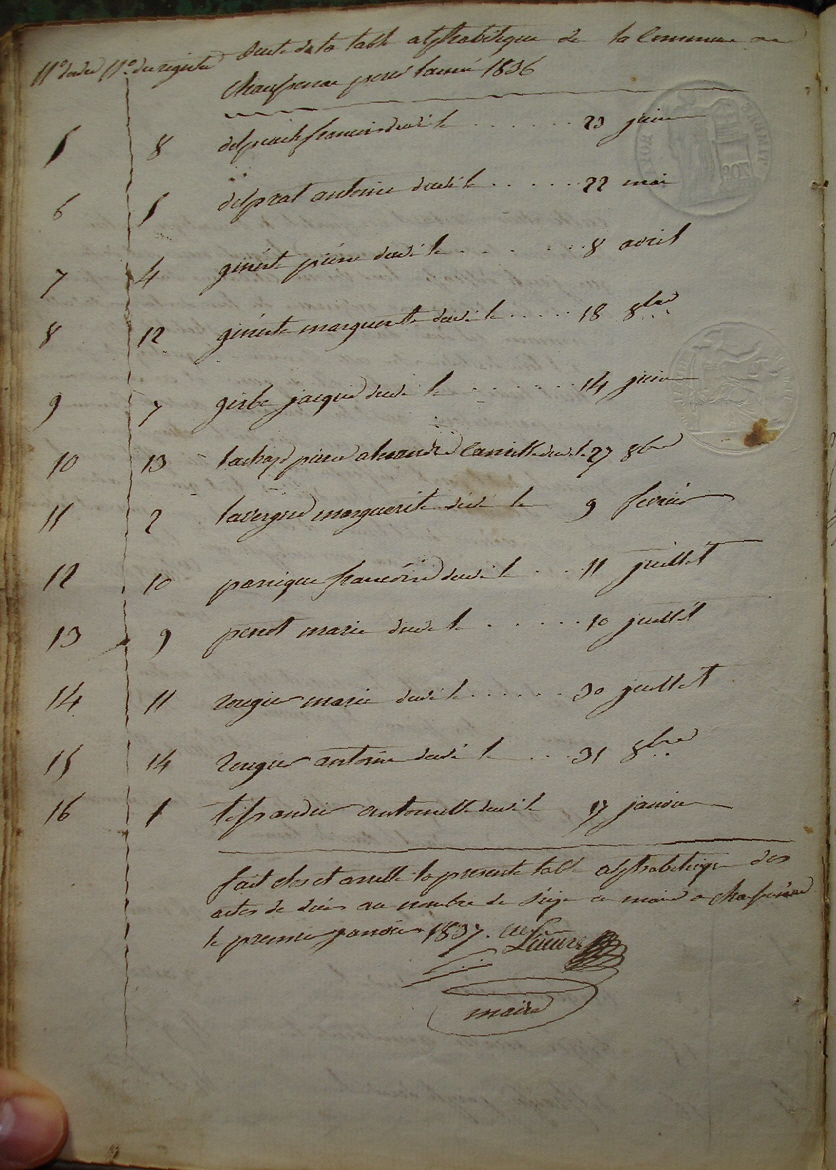 N° dordre N° du registre Suite de la table alphabetique de la Commune de
Chaussenac pour lanné 1836
5 8 delpeuch francois decedé le ........ 23 juin
6 5 delprat antoine decedé le ...... 22 mai
7 4 ginest pierre decedé le ........ 8 avril
8 12 gineste marguerite decedé le ..... 18 8bre
9 7 girbe jacque decedé le ........ 14 juin
10 13 pierre alexandre Camille decedé le 27 8bre
11 2 lavergne marguerite decedé le .. 9 fevrier
12 10 francoise decedé le ... 11 juillet
13 9 marie decedé le ....... 10 juillet
14 11 rougier marie decedé le ....... 30 juillet
15 14 rougier antoine decedé le ... 31 8bre
16 1 antoinette decedé le 17 janvier
fait clos et arreté la presente table alphabetique des
actes de décès au nombre de seize a mairie a Chaussenac
le premier janvier 1837.
maire